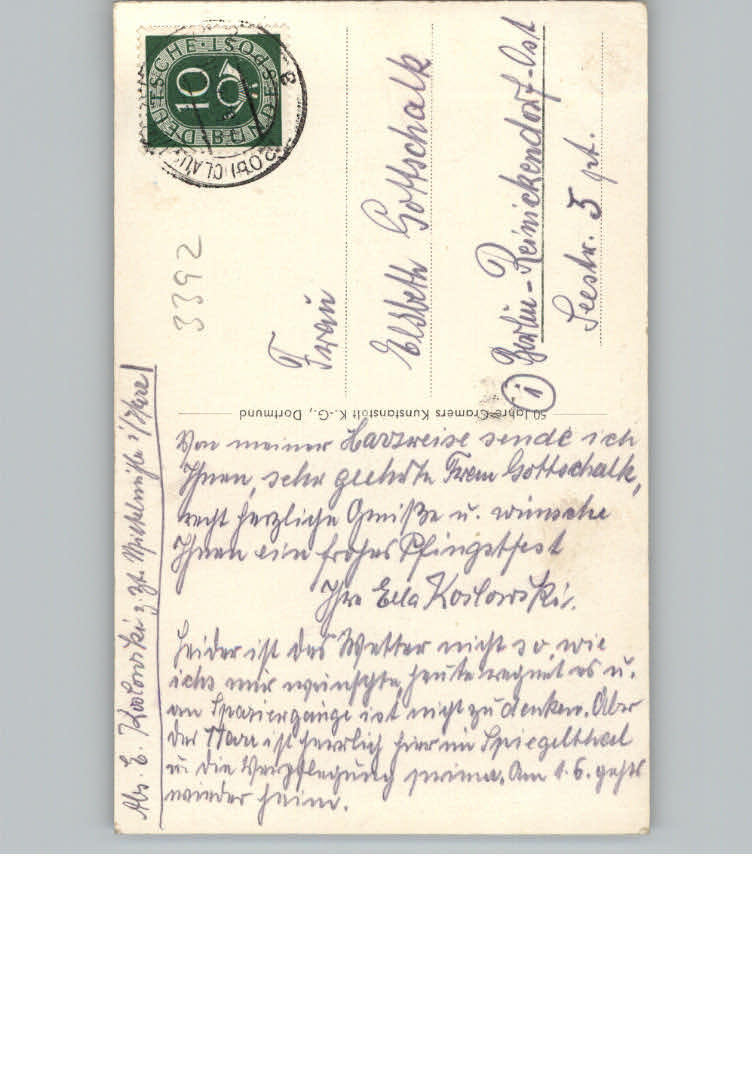 DEUTSCHE BUNDESPOST
10
3392
Frau
Elsbeth Gottschalk
(1) Berlin-Reinickendorf-Ost
Seestr. 5 pt.
50 Jahre Cramers Kunstanstalt K.-G., Dortmund
Von meiner Harzreise sende ich
Ihnen, sehr geehrte Frau Gottschalk,
recht herzliche Grüße u. wünsche
Ihnen ein frohes Pfingstfest
Ihre Ella Koslowski.
Leider ist das Wetter nicht so, wie
ichs mir wünschte, heute regnet es u.
an Spaziergänge ist nicht zu denken. Aber
der Harz ist herrlich hier im Spiegelthal
u. die Verpflegung prima. Am 1.6. gehts
wieder heim.
Abs. E. Koslowski z. Zt. i/Harz